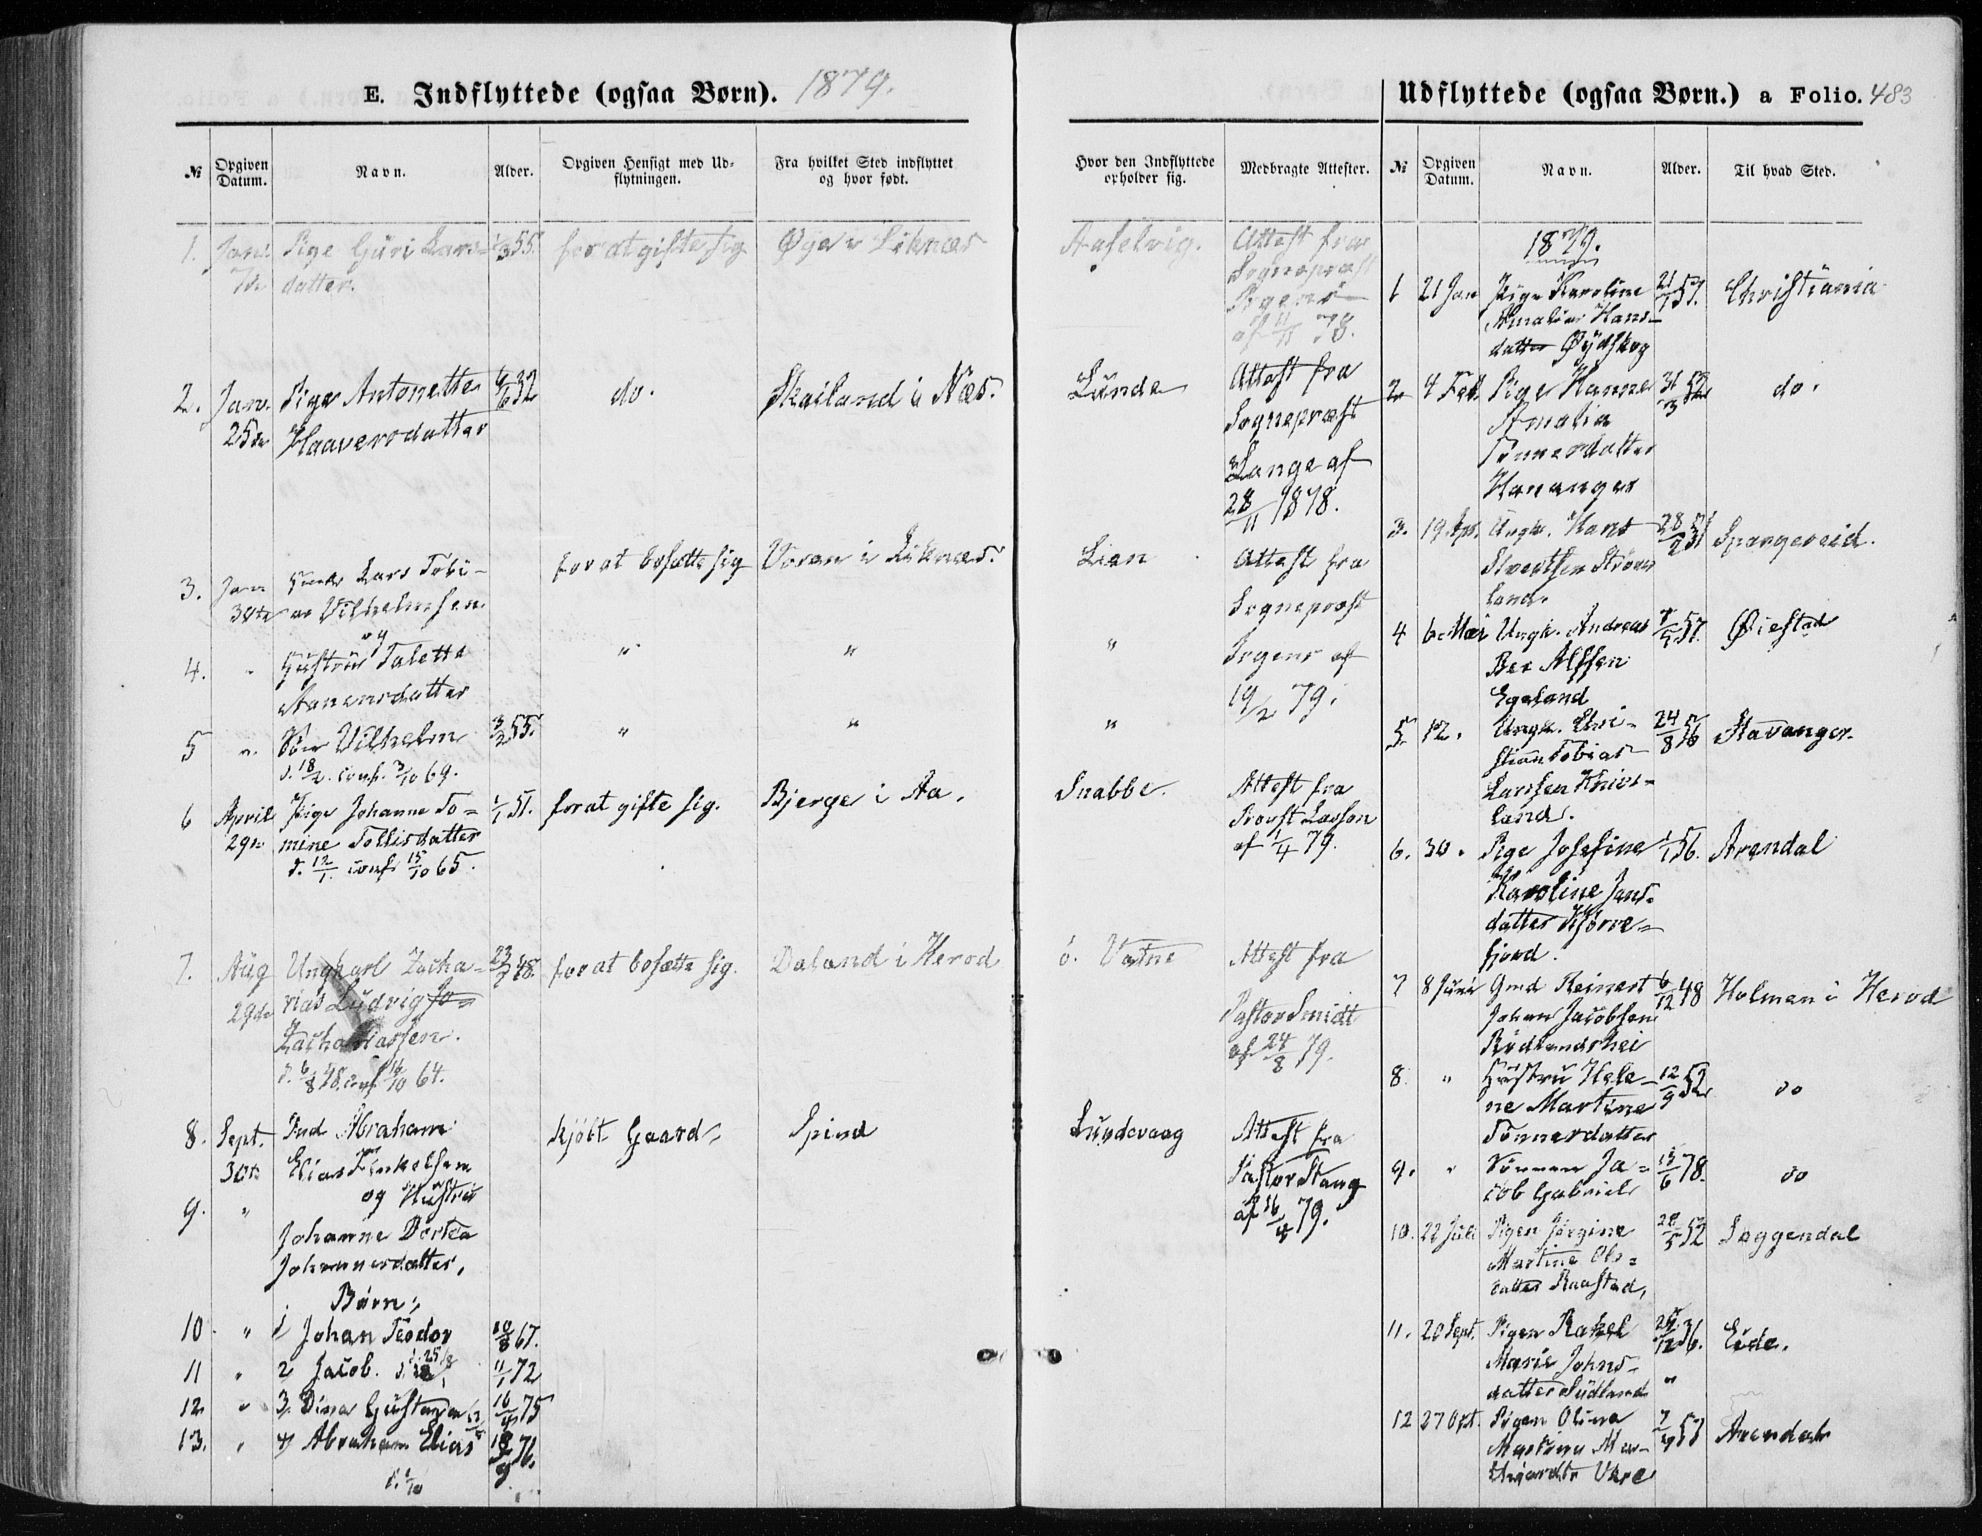 E. Indflyttede (ogsaa Børn). 1879.
№ Opgiven Datum. Navn. Alder. Opgiven Hensigt med Udflytningen. Fra hvilket Sted indflyttet og hvor født.
Hvor den Indflyttede opholder sig. Medbragte Attester.
1. Jan. Pige Guri Lars= 55. for at gifte sig Øye i Liknæs
datter.
Attest fra
Sognepræst
af 11/11 78.
2. Jan. Pige Antonette 32 do. Skailand i Næs. Lunde Attest fra
25de Haaversdatter Sognepræst
Lange af
28/11 1878.
3. Jan Lars Tobi- for at bosætte sig Voran i Liknæs. Lian Attest fra
30te as Vilhelmsen Sognepræst
og
4. " Hustru Taletta " " " Irgens af
Aanensdatter 19/2 79.
5 " Søn Vilhelm 3/2 55. " " "
d. 18/2. conf. 3/10 69.
6 April Pige Johanne To= 1/1 51. for at gifte sig. Bjerge i Aa. Snabbe. Attest fra
29de mine Tollisdatter Provst Lasson
d. 12/1. conf. 15/10 65. af 1/4 79.
7. Aug Ungkarl Zacha= 23/7 48. for at bosætte sig. Daland i Herod ø. Vatne Attest fra
29de rias Ludvig Jo= Pastor Smidt
Zachariassen. af 24/8 79.
d. 6/8 48. conf. 16/10 64.
8. Sept. Abraham kjöbt Gaard Spind Lundevaag Attest fra
30te Elias Pastor Stang
og Hustru af 16/4 79.
9. "
Johanne Dorthea
Johannesdatter,
Børn:
10 " 1 Johan Teodor 10/8 67.
11 " 2 Jacob. 11/1 72
12 " 3. Dina Gustava 16/4 75
13. " 4 Abraham Elias 76.
Udflyttede (ogsaa Børn.) a Folio. 483
№ Opgiven Datum. Navn. Alder. Til hvad Sted.
1879.
1 21 Jan Pige Karoline 21/1 57. Christiania
Amalia Hans=
datter Øydskog
2 4 Feb. Pige Hanne 31/3 52 do.
Amalia
Tönnesdatter
Hananger
3. 19 Apr. Ungk. Hans 28/2 51 Spangereid.
Sivertsen
land.
4 6 Mai Ungk. Andreas 57. Øiestad
Ber Alfsen
Egeland
5. 12. Ungk. Chri- 24/8 56 Stavanger
stian Tobias
Larssen
land.
6. 30. Pige Josefine 1/1 56. Arendal
Karoline Jans=
datter Kjörre=
fjord.
7 8 Juni Gmd Reinert 6/12 48 Holmen i Herod
Johan Jacobsen
Rødlandshei
8. " Hustru Hele= 12/9 52 do
ne Martine
Tönnesdatter
9. " Sönnen Ja= 15/6 78. do
cob Gabriel
10. 22 Juli Pigen Jörgine 28/5 52 Soggendal
Martine Ols=
datter Raustad,
11. 20 Sept. Pigen Rakel 36. Eide.
Marie Johns=
datter Sudland "
12 27 Oct. Pigen Olina 7/9 57 Arendal
Martine
Vare